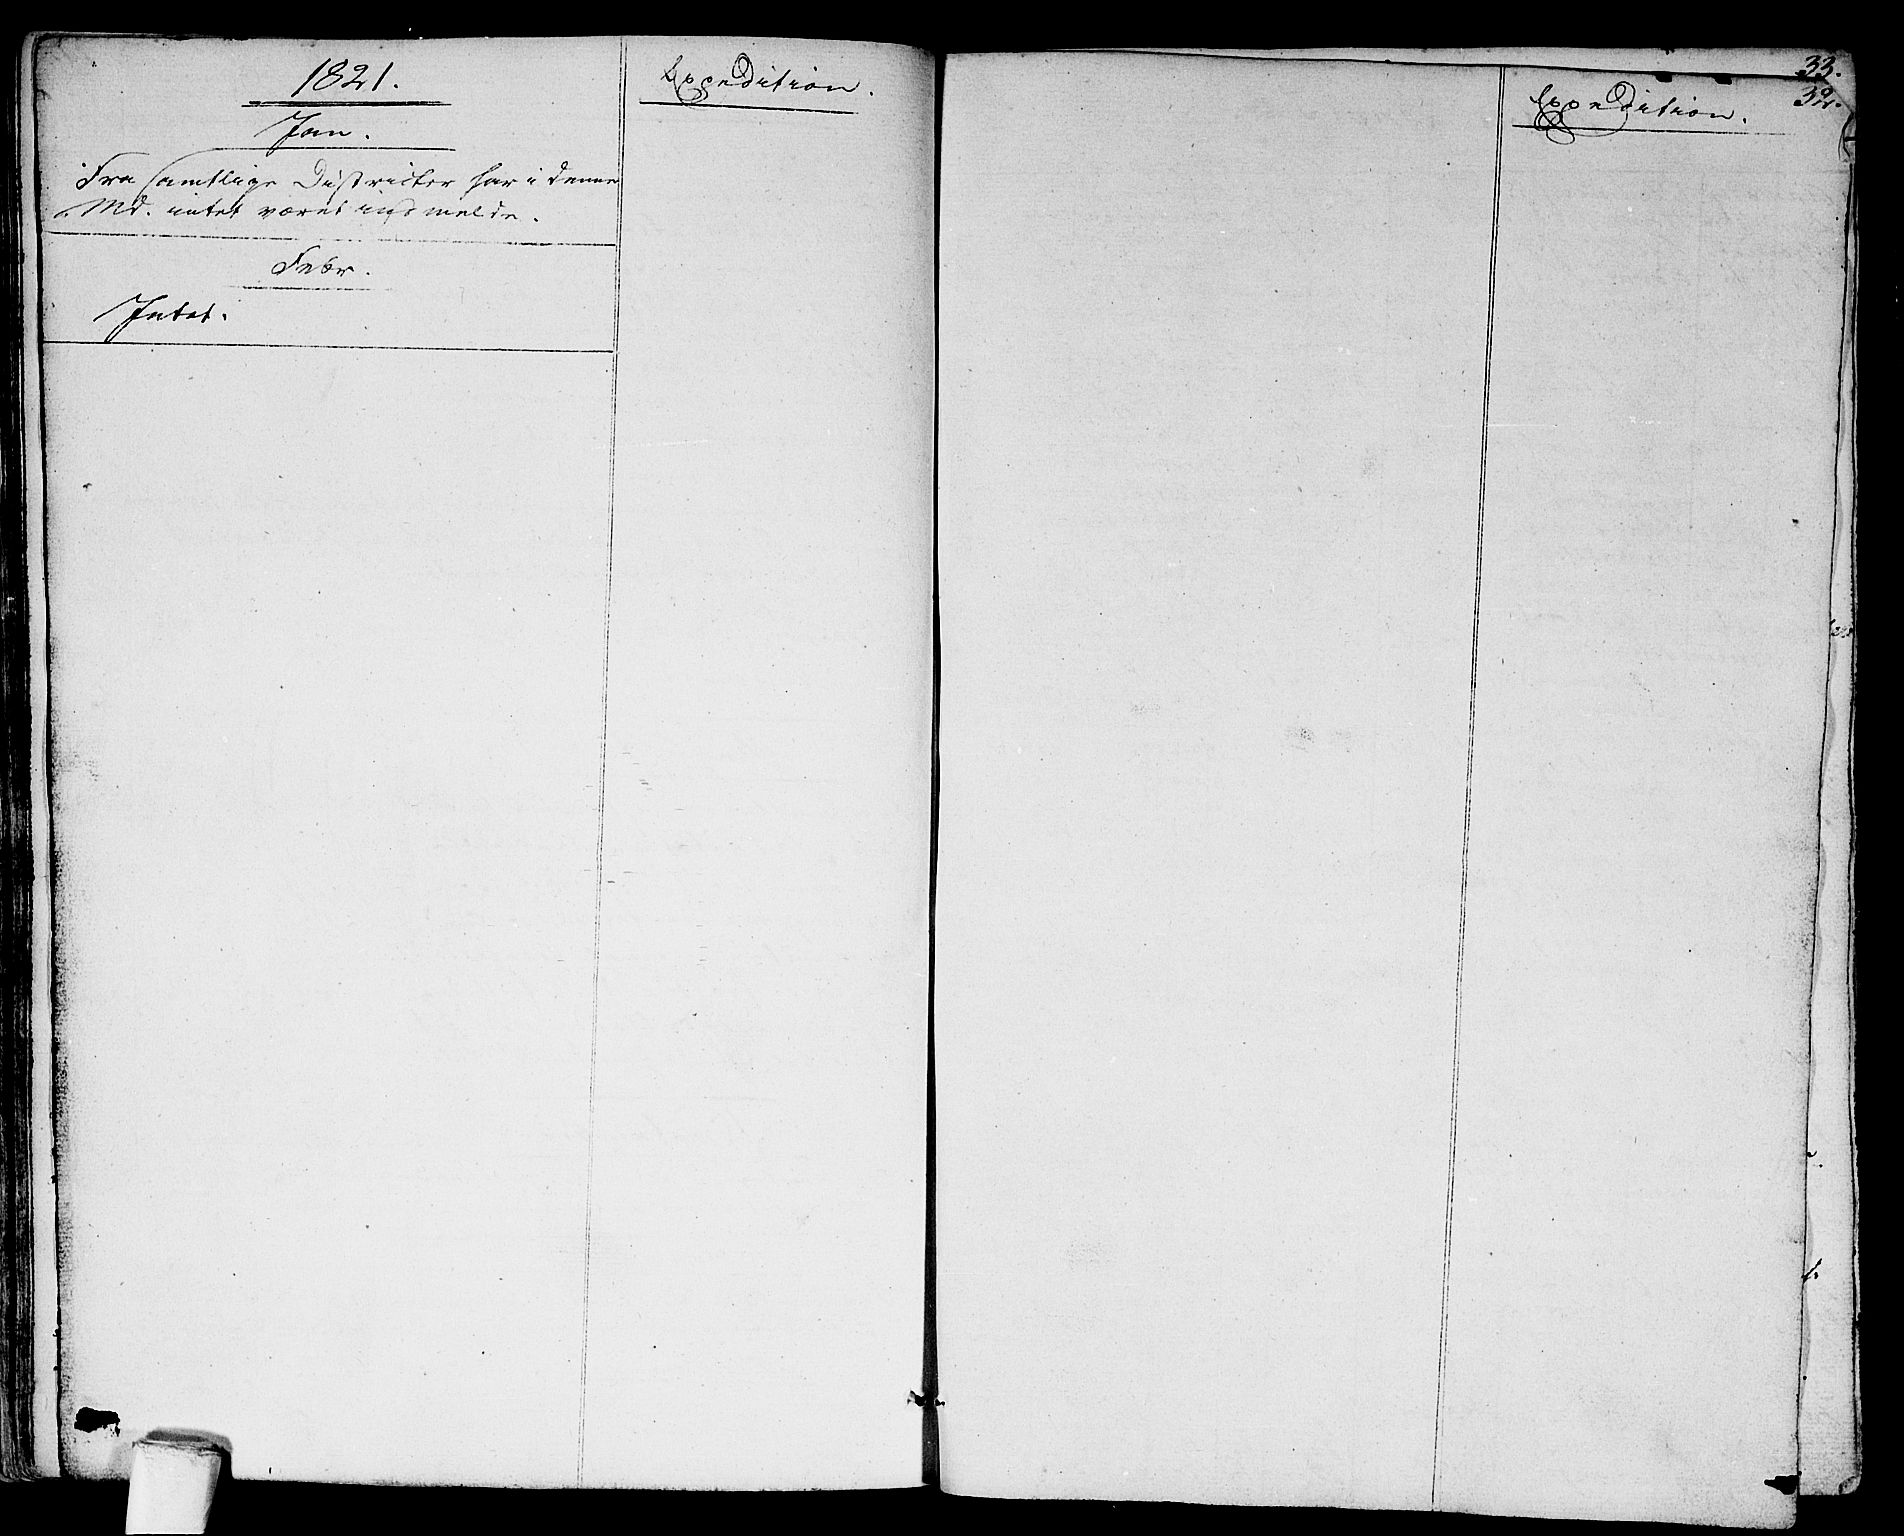 1821.
Jan.
Fra samtlige Districter har i denne
Md. intet været indmeldt.
Febr.
Intet.
Expedition.
33.
32.
Expedition.